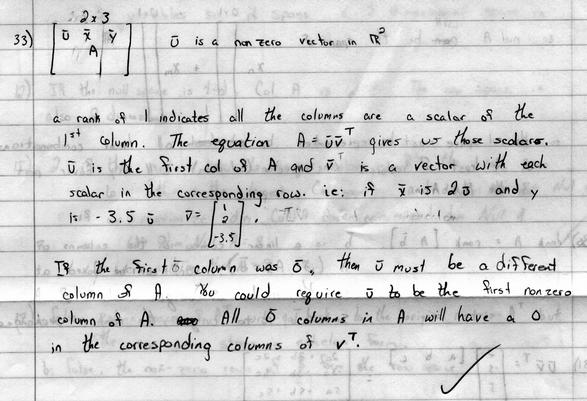 2x3
33) [ ū x̄ ȳ ] ū is a non zero vector in ℝ²
A
a rank of 1 indicates all the columns are a scalar of the
1st column. The equation A = ūv̄ᵀ gives us those scalars.
ū is the first col of A and v̄ᵀ is a vector with each
scalar in the corresponding row. ie: if x̄ is 2ū and y
is -3.5 ū v̄ = [ 1 2 -3.5 ].
If the first ō column was ō, then ū must be a different
column of A. You could require ū to be the first nonzero
column of A. All ō columns in A will have a 0
in the corresponding columns of vᵀ.